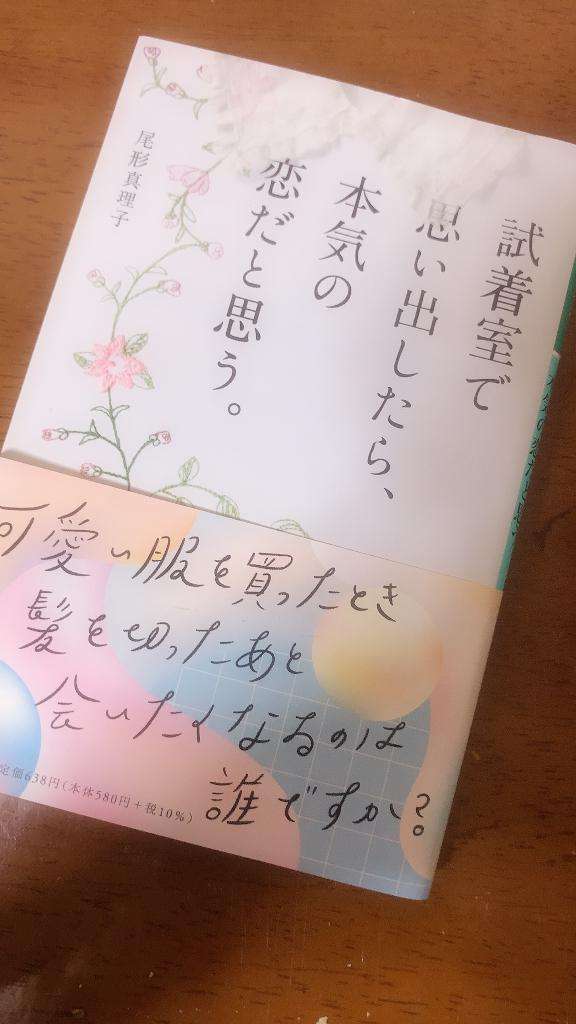 試着室で
思い出したら、
本気の
恋だと思う。
尾形真理子
可愛い服を買ったとき
髪を切ったあと
会いたくなるのは
誰ですか?
定価638円(本体580円+税10%)